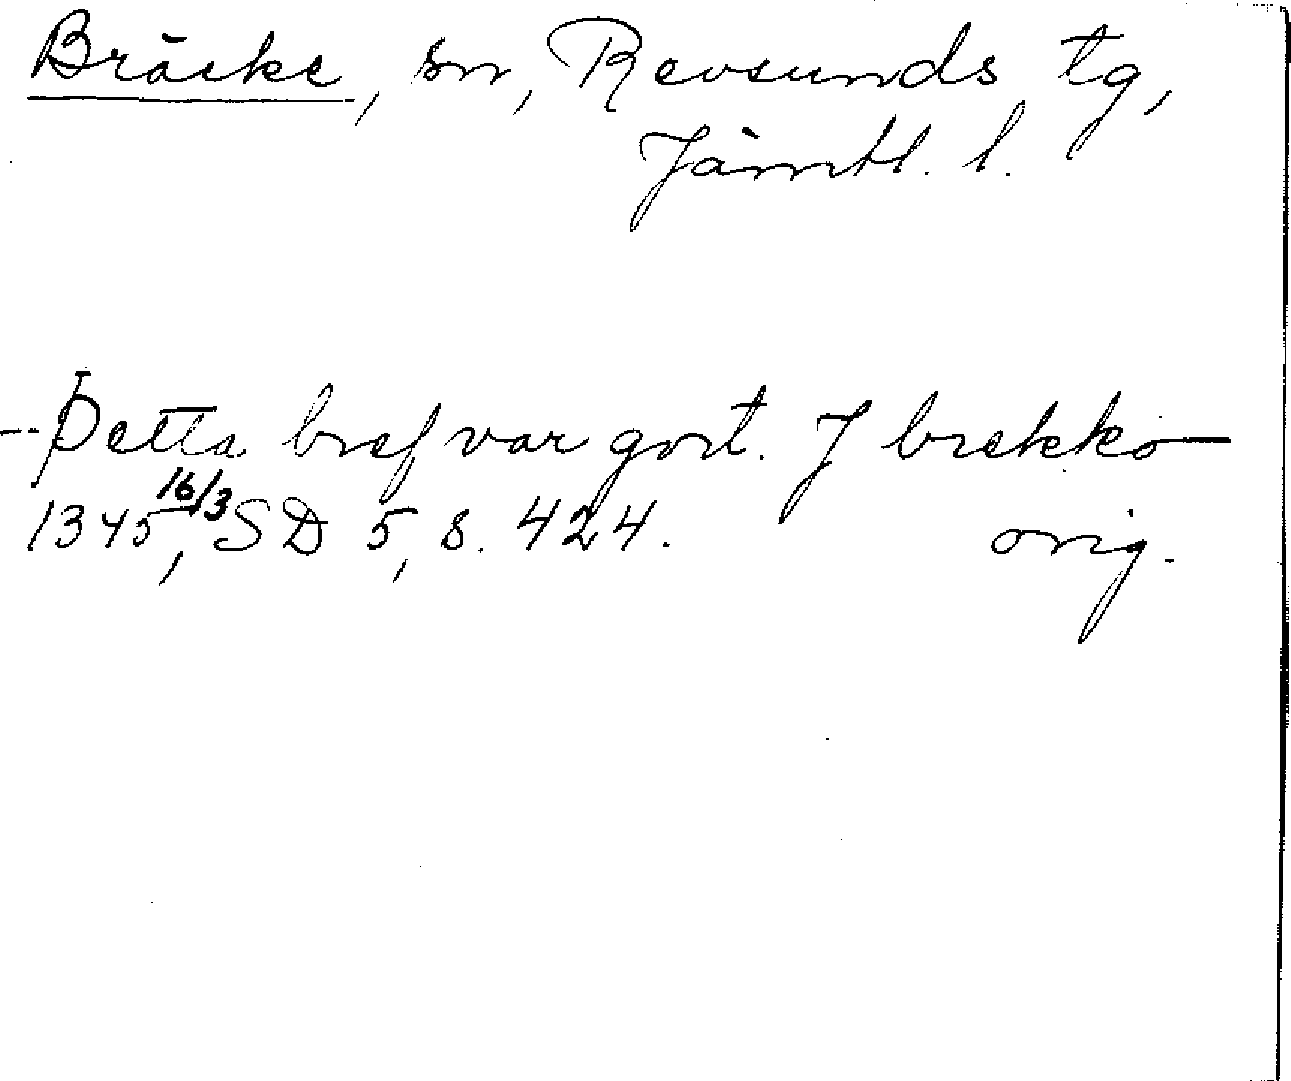 Bräcke, sn, Revsunds tg,
Jämtl. l.
-- Þetta bref var gort. J brekko —
1345 16/3, SD 5, s. 424. orig.